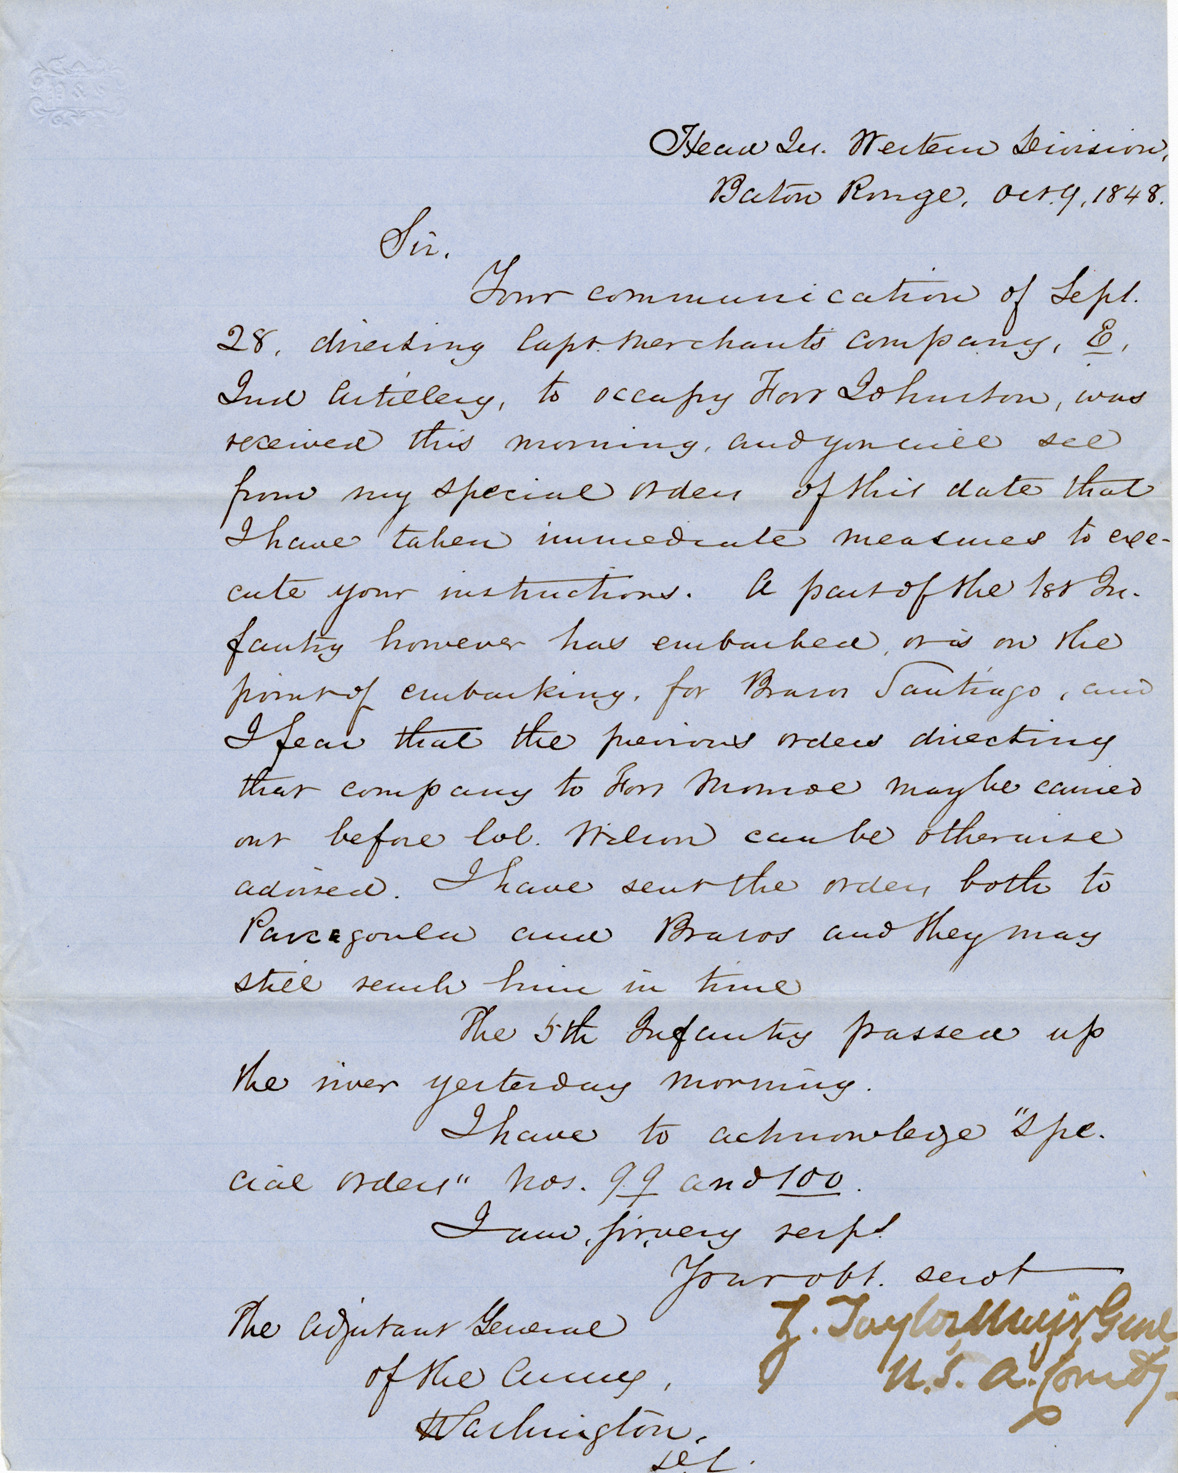 Head Qrs. Western Division,
Baton Rouge, Oct. 9, 1848.
Sir.
Your communication of Sept.
28, directing Capt. Merchant's company, E,
2nd Artillery, to occupy Fort Johnston, was
received this morning, and you will see
from my special orders of this date that
I have taken immediate measures to exe-
cute your instructions. A part of the 1st In-
fantry however has embarked, or is on the
point of embarking, for Brasos Santiago, and
I fear that the previous orders directing
that company to Fort Monroe may be carried
out before Col. Wilson can be otherwise
advised. I have sent the orders both to
Pascagoula and Brasos and they may
still reach him in time
The 5th Infantry passed up
the river yesterday morning.
I have to acknowledge "Spe-
cial orders" Nos. 99 and 100.
I am, sir, very resp't
Your obt. servt
The Adjutant General
Z. Taylor Majr Genl
of the Army,
U.S. A. Comdg
Washington,
D.C.